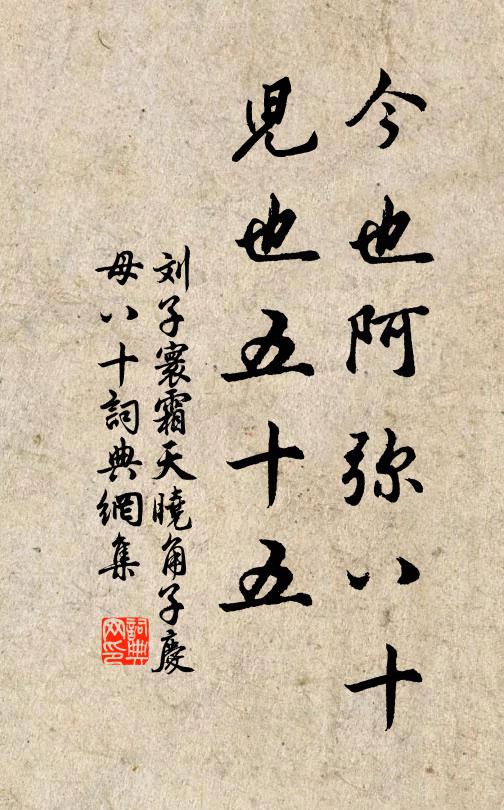 今也阿弥八十
児也五十五
刘子寰霜天曉角子慶
母八十詞典網集
詞典网印